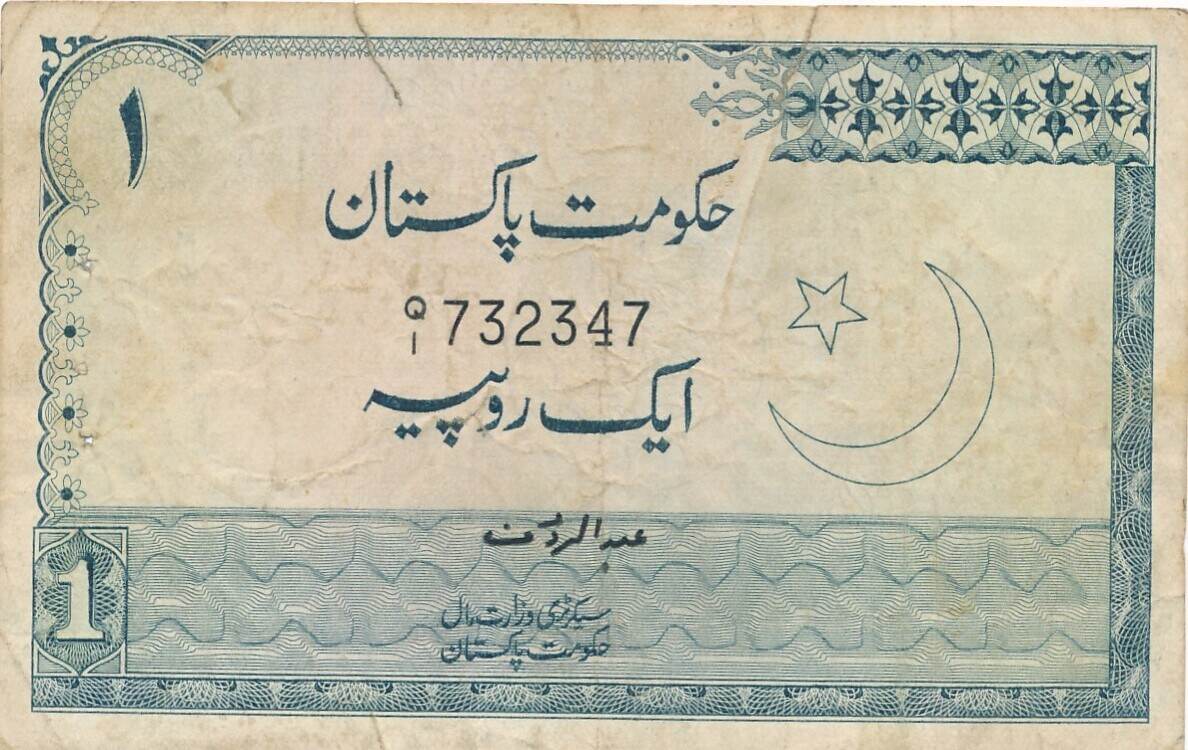 ۱
حکومت پاکستان
Q/1 732347
ایک روپیہ
عبدالرؤف
سیکرٹری وزارت مال
حکومت پاکستان
1